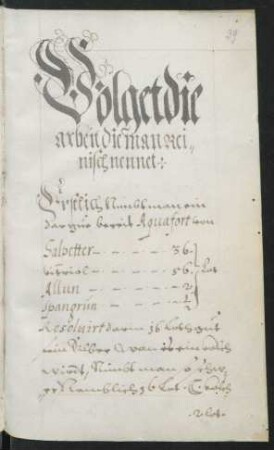 29
Volget die
arben die man Rei„
nisch nennet:
Erstlich Nimbt man ein
darzue bereit Aquafort von
Salpetter - - - - 36
vitriol - - - - 56 Lot
Allun - - - - 2
Spangrün - - - - ½
Resoluirt darin 16 Loth gut
fein Silber
wirdt, Nimbt man
Nemblich 16 Lot
2 Lot